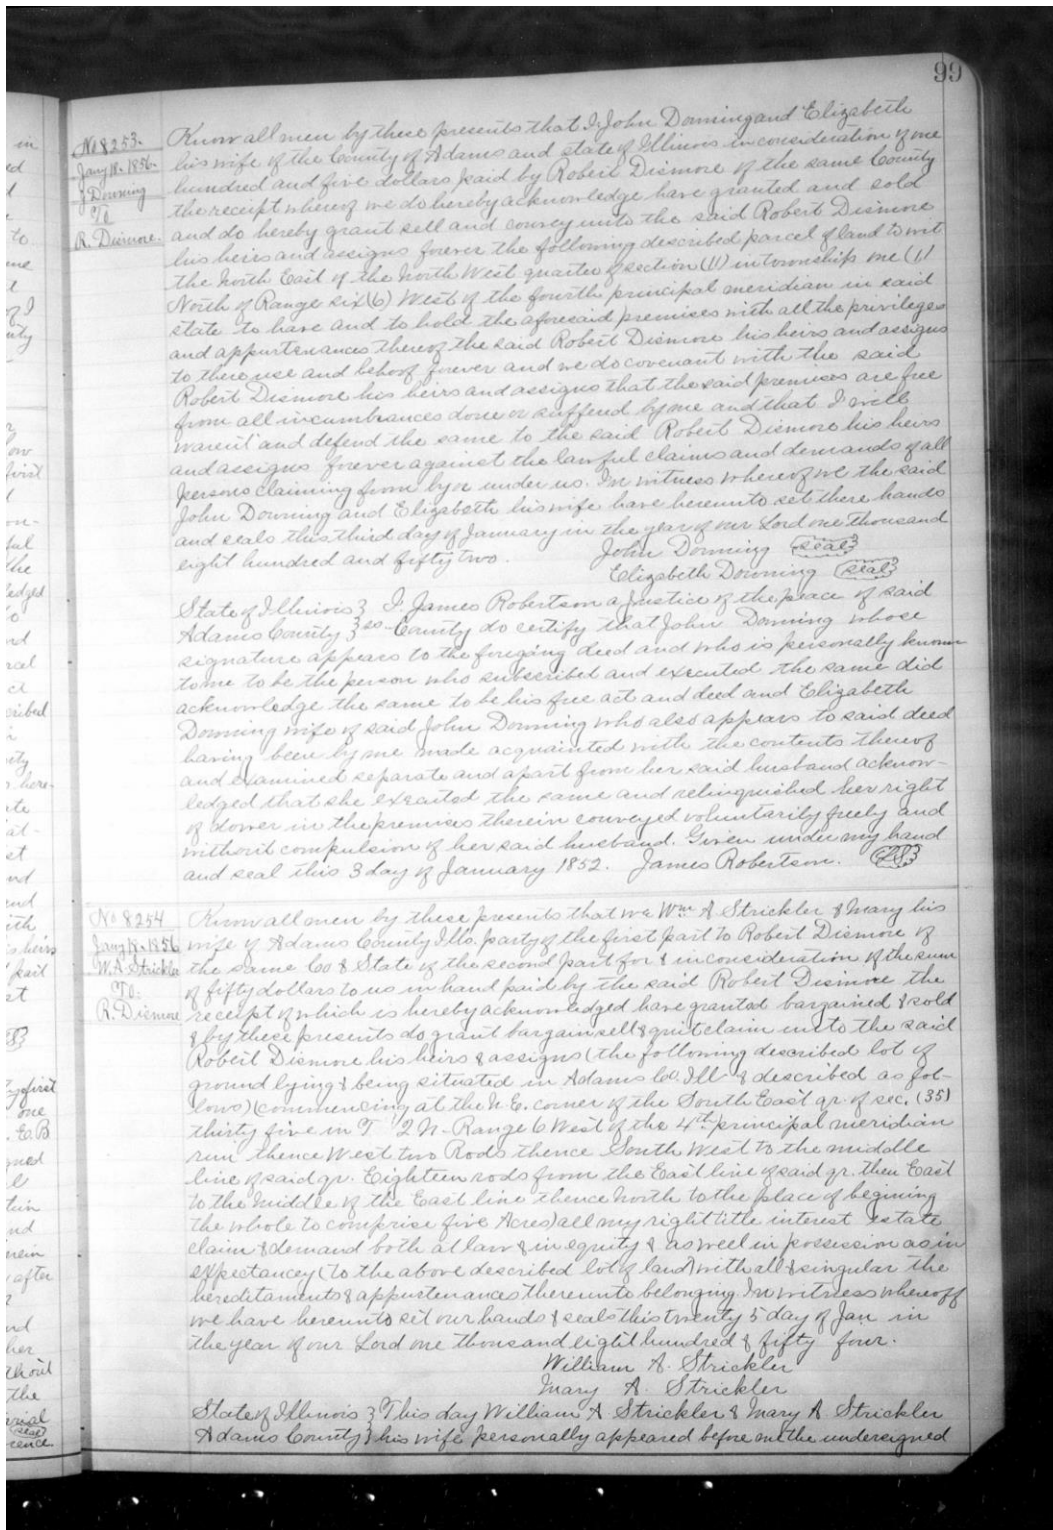 99
No 8253.
Jany 18. 1856.
J Downing
To
R. Dismore.
Know all men by these presents that I John Downing and Elizabeth
his wife of the County of Adams and state of Illinois in consideration of one
hundred and five dollars paid by Robert Dismore of the same County
the receipt whereof we do hereby acknowledge have granted and sold
and do hereby grant sell and convey unto the said Robert Dismore
his heirs and assigns forever the following described parcel of land to wit
the North East of the North West quarter of section (11) in township one (1)
North of Range six (6) West of the fourth principal meridian in said
state to have and to hold the aforesaid premises with all the privileges
and appurtenances thereof the said Robert Dismore his heirs and assigns
to there use and behoof forever and we do covenant with the said
Robert Dismore his heirs and assigns that the said premises are free
from all incumbrances done or suffered by me and that I will
warent and defend the same to the said Robert Dismore his heirs
and assigns forever against the lawful claims and demands of all
persons claiming from by or under us. In witness whereof we the said
John Downing and Elizabeth his wife have hereunto set there hands
and seals this third day of January in the year of our Lord one thousand
eight hundred and fifty two. John Downing (seal)
Elizabeth Downing (seal)
State of Illinois } I, James Robertson a Justice of the peace of said
Adams County } ss County do certify that John Downing whose
signature appears to the foregoing deed and who is personally known
to me to be the person who subscribed and executed the same did
acknowledge the same to be his free act and deed and Elizabeth
Downing wife of said John Downing who also appears to said deed
having been by me made acquainted with the contents thereof
and examined separate and apart from her said husband acknow-
ledged that she executed the same and relinquished her right
of dower in the premises therein conveyed voluntarily freely and
without compulsion of her said husband. Given under my hand
and seal this 3 day of January 1852. James Robertson.
No 8254
Jany 18. 1856
W. A. Strickler
To.
R. Dismore
Know all men by these presents that we Wm A Strickler & Mary his
wife of Adams County Ills. party of the first part to Robert Dismore of
the same Co & State of the second part for & in consideration of the sum
of fifty dollars to us in hand paid by the said Robert Dismore the
receipt of which is hereby acknowledged have granted bargained & sold
& by these presents do grant bargain sell & quit claim unto the said
Robert Dismore his heirs & assigns (the following described lot of
ground lying & being situated in Adams Co. Ill & described as fol-
lows) (commencing at the N. E. corner of the South East qr. of sec. (35)
thirty five in T 2 N- Range 6 West of the 4th principal meridian
run thence West two Rods thence South West to the middle
line of said qr. Eighteen rods from the East line of said qr. then East
to the middle of the East line thence North to the place of begining
the whole to comprise five Acres) all my right title interest estate
claim & demand both at law & in equity & as well in possession as in
expectancy (to the above described lot of land) with all & singular the
hereditaments & appurtenances thereunto belonging. In witness whereoff
we have hereunto set our hands & seals this twenty 5 day of Jan in
the year of our Lord one thousand eight hundred & fifty four.
William A. Strickler
Mary A. Strickler
State of Illinois } This day William A Strickler & Mary A Strickler
Adams County } his wife personally appeared before me the undersigned